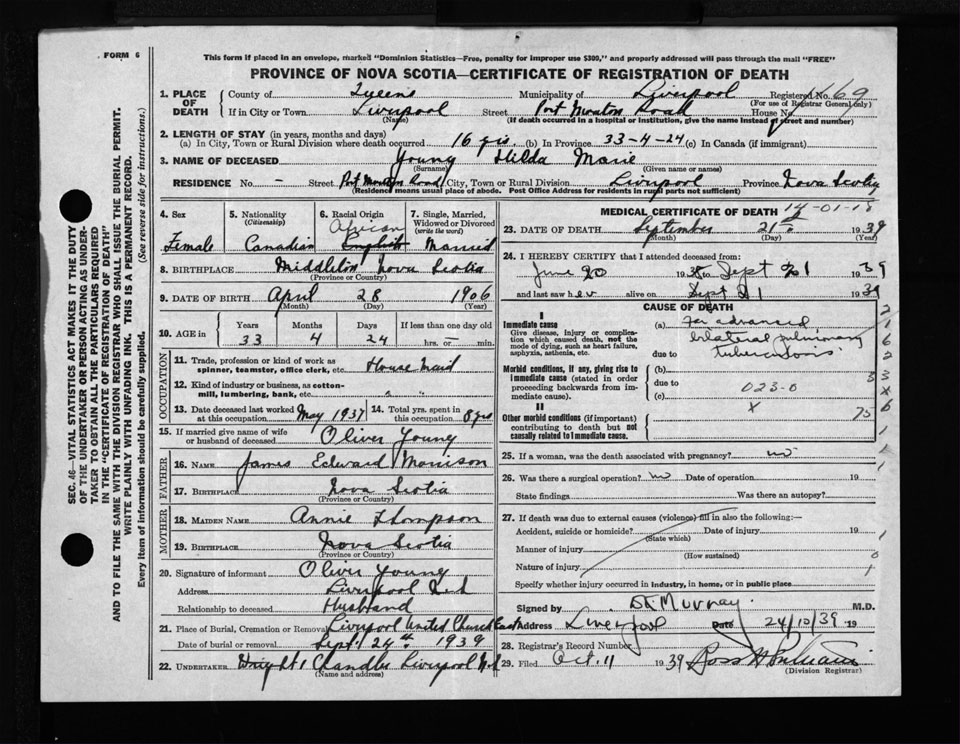 FORM 6
This form if placed in an envelope, marked "Dominion Statistics—Free, penalty for improper use $300," and properly addressed will pass through the mail "FREE"
PROVINCE OF NOVA SCOTIA—CERTIFICATE OF REGISTRATION OF DEATH
1. PLACE OF DEATH County of Queen's Municipality of Liverpool Registered No. 669
(For use of Registrar General only)
If in City or Town Liverpool Street Port Mouton Road House No.
(Name) (If death occurred in a hospital or institution, give the name instead of street and number)
2. LENGTH OF STAY (in years, months and days)
(a) In City, Town or Rural Division where death occurred 16 yrs. (b) In Province 33-4-24 (c) In Canada (if immigrant)
3. NAME OF DECEASED Young Hilda Marie
(Surname) (Given name or names)
RESIDENCE No. — Street Port Mouton Road City, Town or Rural Division Liverpool Province Nova Scotia
(Residence means usual place of abode. Post Office Address for residents in rural parts not sufficient)
4. Sex Female
5. Nationality (Citizenship) Canadian
6. Racial Origin African English
7. Single, Married, Widowed or Divorced (write the word) Married
8. BIRTHPLACE Middleton Nova Scotia
(Province or Country)
9. DATE OF BIRTH April 28 1906
(Month) (Day) (Year)
10. AGE in Years Months Days If less than one day old
33 4 24 hrs. or min.
OCCUPATION
11. Trade, profession or kind of work as spinner, teamster, office clerk, etc. House Maid
12. Kind of industry or business, as cotton-mill, lumbering, bank, etc. " "
13. Date deceased last worked at this occupation May 1937 14. Total yrs. spent in this occupation 8 yrs
15. If married give name of wife or husband of deceased Oliver Young
FATHER
16. NAME James Edward Morrison
17. BIRTHPLACE Nova Scotia
(Province or Country)
MOTHER
18. MAIDEN NAME Annie Thompson
19. BIRTHPLACE Nova Scotia
(Province or Country)
20. Signature of informant Oliver Young
Address Liverpool N.S
Relationship to deceased Husband
21. Place of Burial, Cremation or Removal Liverpool United Church East
Date of burial or removal Sept. 24th 1939
22. UNDERTAKER Wright & Chandler Liverpool N.S
(Name and address)
MEDICAL CERTIFICATE OF DEATH 14-01-18
23. DATE OF DEATH September 21 1939
(Month) (Day) (Year)
24. I HEREBY CERTIFY that I attended deceased from:
June 20 1938 to Sept 21 1939
and last saw her alive on Sept 21 1939
CAUSE OF DEATH
I
Immediate cause
Give disease, injury or complication which caused death, not the mode of dying, such as heart failure, asphyxia, asthenia, etc.
(a) Far advanced
bilateral pulmonary
due to tuberculosis
Morbid conditions, if any, giving rise to immediate cause (stated in order proceeding backwards from immediate cause).
(b)
due to
023-0
(c)
II
Other morbid conditions (if important) contributing to death but not causally related to immediate cause.
X
25. If a woman, was the death associated with pregnancy? no
26. Was there a surgical operation? no Date of operation 19
State findings Was there an autopsy?
27. If death was due to external causes (violence) fill in also the following:—
Accident, suicide or homicide? Date of injury 19
(State which)
Manner of injury
(How sustained)
Nature of injury
Specify whether injury occurred in industry, in home, or in public place
Signed by Murray M.D.
Address Liverpool Date 24/10/39 19
28. Registrar's Record Number
29. Filed Oct. 11 1939
(Division Registrar)
SEC. 46—VITAL STATISTICS ACT MAKES IT THE DUTY
OF THE UNDERTAKER OR PERSON ACTING AS UNDER-
TAKER TO OBTAIN ALL THE PARTICULARS REQUIRED
IN THE "CERTIFICATE OF REGISTRATION OF DEATH"
AND TO FILE THE SAME WITH THE DIVISION REGISTRAR WHO SHALL ISSUE THE BURIAL PERMIT.
WRITE PLAINLY WITH UNFADING INK. THIS IS A PERMANENT RECORD.
Every item of information should be carefully supplied. (See reverse side for instructions.)